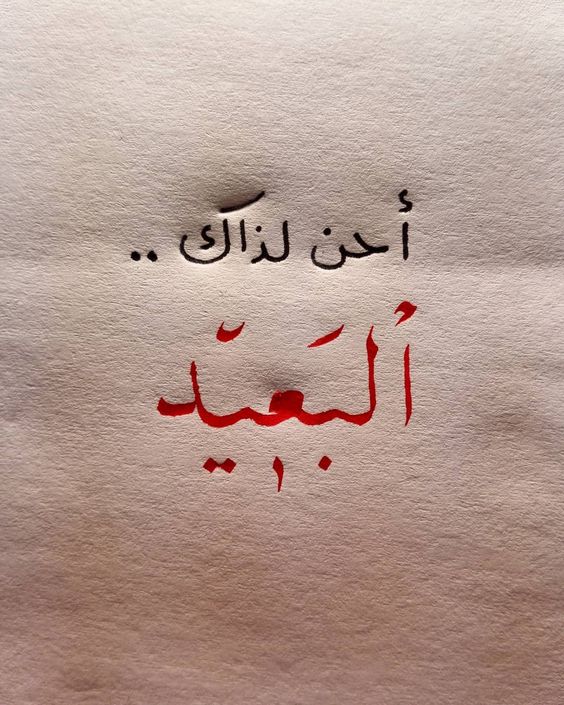 أحن لذاكَ ..
ألبَعيّد